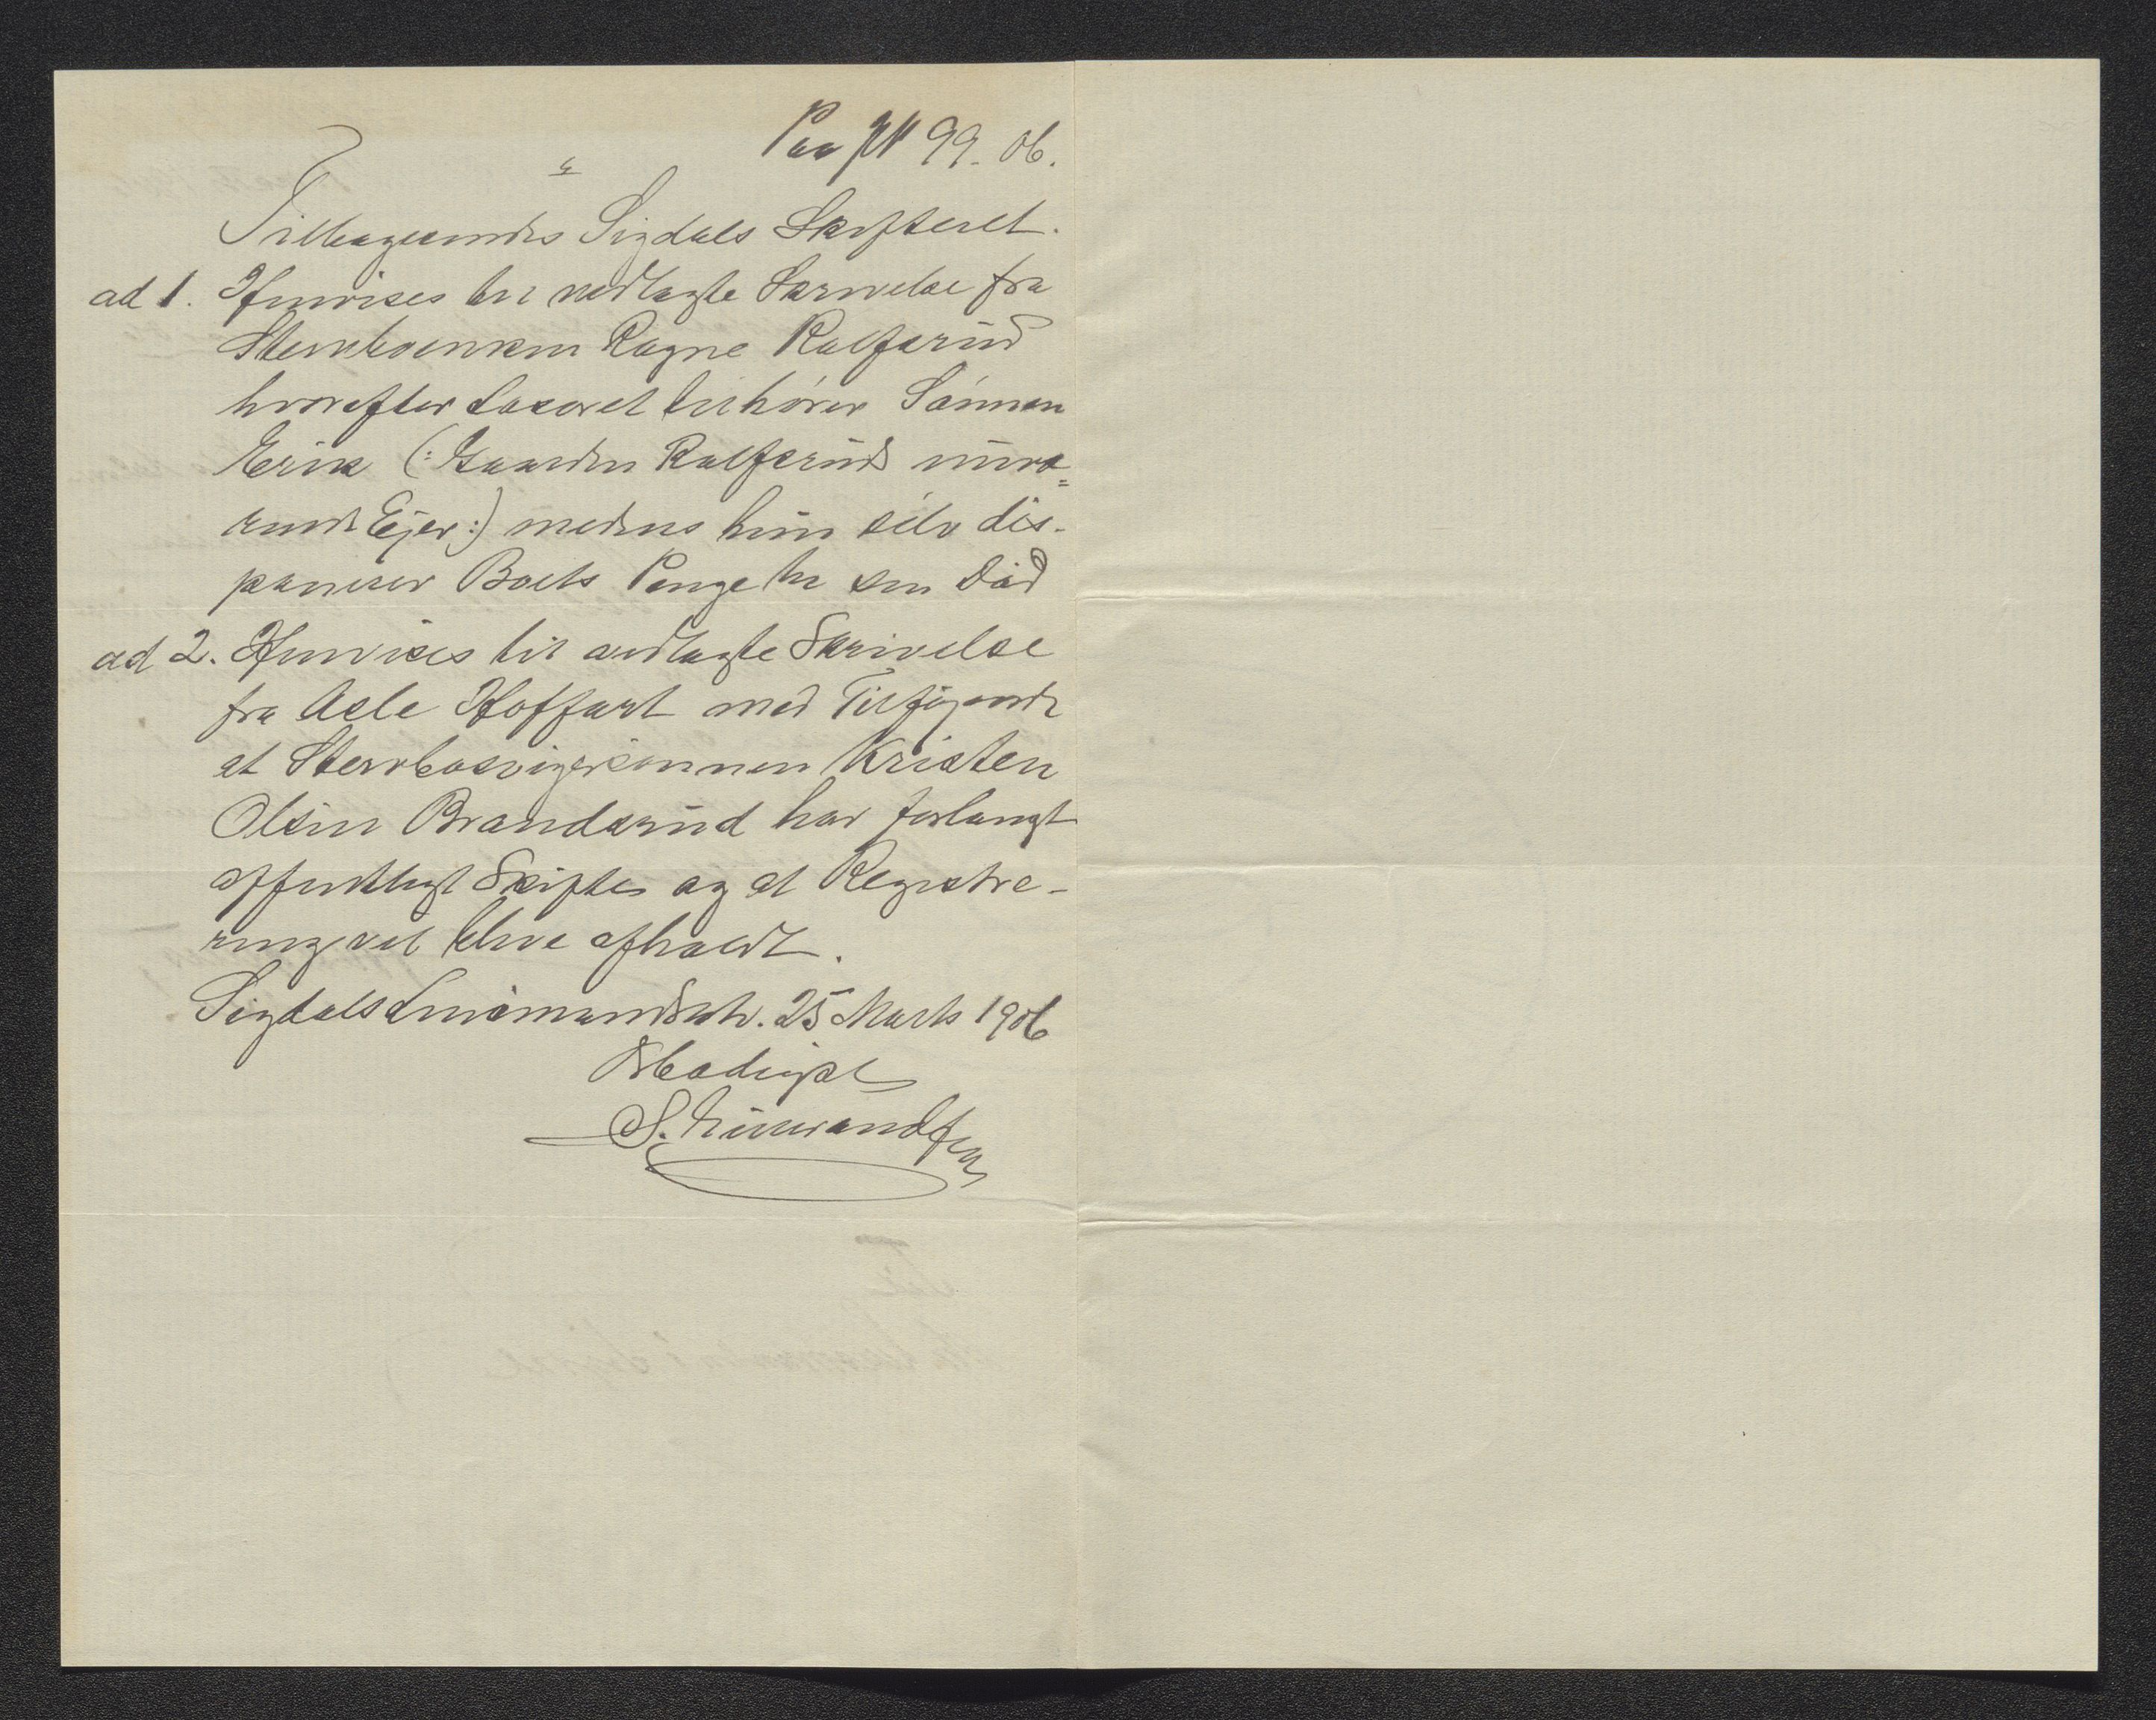 Paa JN 99. 06.
Tilbagesendes Sigdals Skifteret.
ad 1. Henvises til vedlagte Skrivelse fra
Stervboenken Ragne Kalfsrud
hvorefter Løsøret tilhører Sønnen
Erik (: Gaarden Kalfsruds nuvæ=
rende Ejer :) medens hun selv dis-
ponerer Boets Penge til sin Død
ad 2. Henvises til vedlagte Skrivelse
fra Asle Hoffart med Tilføiende
at Stervbosvigersønnen Kristen
Olsen Brandsrud har forlangt
offentligt Skifte og at Registre-
ring vil blive afholdt.
Sigdals Lensmandsktr. 25 Marts 1906
Ærbødigst